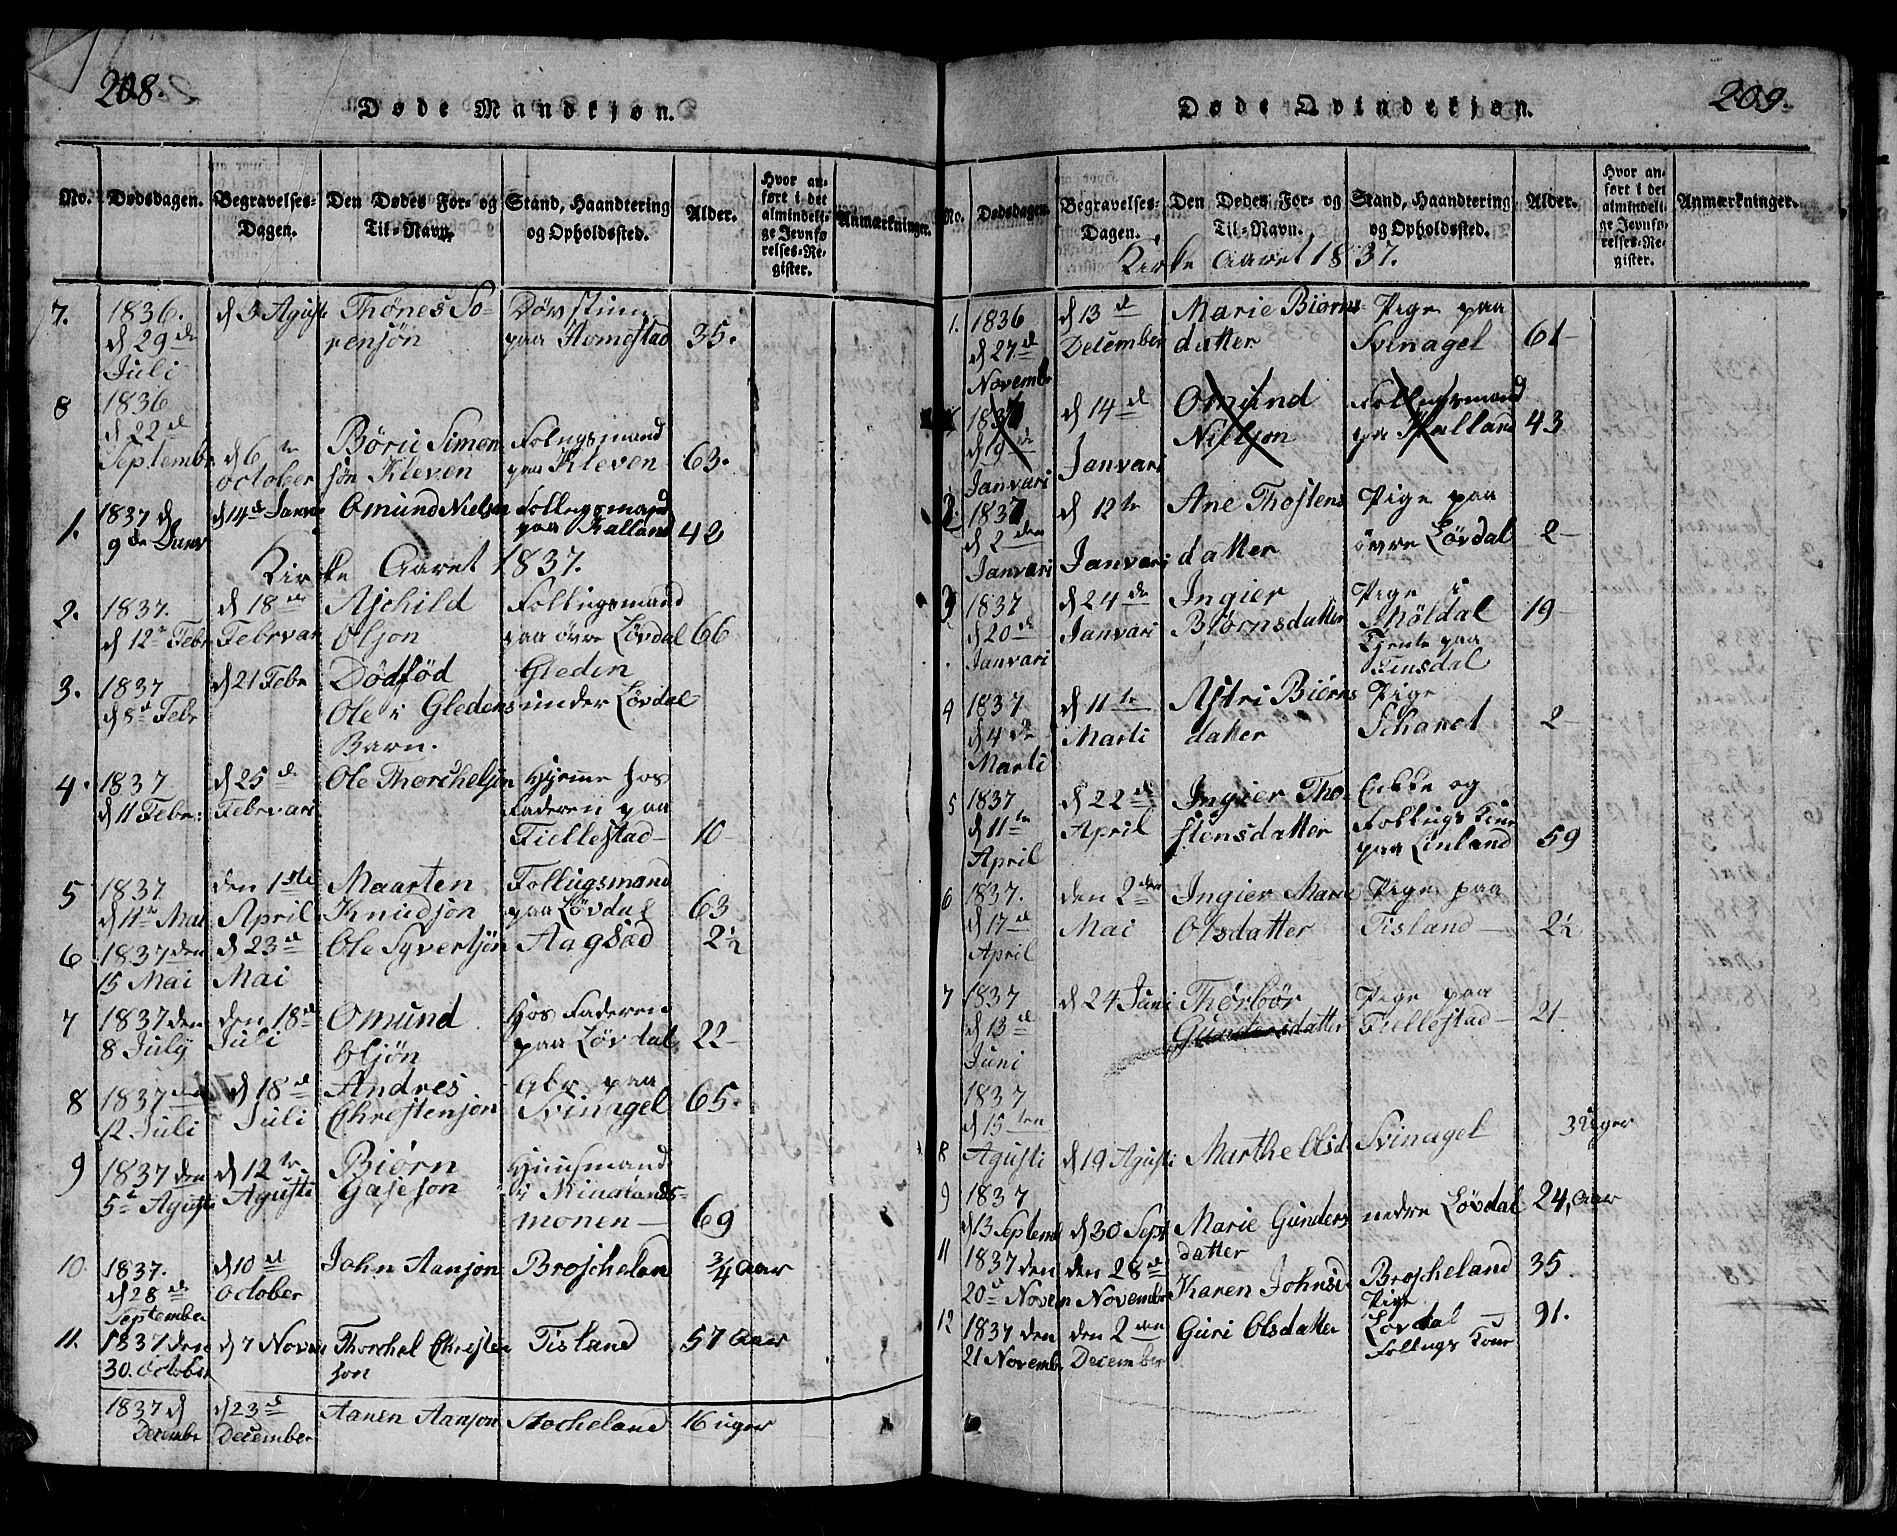 208.
Døde Mandkjøn.
No.
Dødsdagen.
Begravelses-
Dagen.
Den Dødes For- og
Til-Navn.
Stand, Haandtering
og Opholdssted.
Alder.
Hvor an-
ført i det
almindeli-
ge Jevnfø-
relses-Re-
gister.
Anmærkninger.
7.
1836.
d 29de
Juli
d 5 Agusti
Thönes So-
rensön
paa Homestad
35.
8
1836
d 22de
Septembr
d 6te
october
Börie Simon
sön Kleven
Folugsmand
paa Kleven
63.
1.
1837 d
9de Janv
d 14de Janv
Omund Nielsen
Follugsmand
paa Kalland
42
Kirke Aaret 1837.
2.
1837.
d 12te Febr
d 18de
Febrvar
Aschild
Olson
Follugsmand
paa övre Lövdal
66
3.
1837
d 8de Febr
d 21 Febr
Dödföd
Ole i Gledens
Barn.
Gleden
under Lövdal
4.
1837
d 11 Febr:
d 25de
Febrvari
Ole Thorchelsön
Hjeme hos
Faderen paa
Fiellestad
10
5
1837
d 11te Mai
den 1ste
April
Maarten
Knudson
Follugsmand
paa Lövdal
63
6
1837 den
15 Mai
d 23de
Mai
Ole Syvertsön
Aagsæd
2½
7
1837 den
8 July
den 18de
Juli
Omund
Olsön
Hos Faderen
paa Lövdal
22
8
1837 den
12 Juli
d 18de
Juli
Andres
Chrestensön
paa
Svinagel
65.
9
1837 den
5te Agusti
d 12te
Agusti
Biörn
Gaseson
Huusmand
i Kinalands-
monen
69
10.
1837.
d 28de
September
d 10de
october
John Aanson
Broscheland
¾ Aar
11.
1837 den
30. october
d 7 Novem
Thorchel Chresten
son
Tisland
57 Aar
1837 d
Decembr
d 23de
December
Aanen Aanson
Stocheland
16 uger
209.
Døde Qvindekjøn.
No.
Dødsdagen.
Begravelses-
Dagen.
Den Dødes For- og
Til-Navn.
Stand, Haandtering
og Opholdssted.
Alder.
Hvor an-
ført i det
almindeli-
ge Jevnfø-
relses-Re-
gister.
Anmærkninger.
Kirke Aaret 1837.
1.
1836
d 27de
Novembr
d 13de
December
Marie Biörns
datter
Pige paa
Svinagel
61
1837
d 9de
Janvari
d 14de
Janvari
Omund
Nielson
Follugsmand
pa Kalland
43
2.
1837
d 2den
Janvari
d 12te
Janvari
Ane Thostens
datter
Pige paa
övre Lövdal
2
3
1837
d 20de
Janvari
d 24de
Janvari
Ingier
Biörnsdatter
Pige i
Möldal
Tjente paa
Linsdal
19
4
1837
d 4de
Marti
d 11te
Marti
Astri Biörns
datter
Pige
Scharet
2
5
1837
d 11te
April
d 22de
April
Ingier Tho-
stensdatter
Enke og
Follugs Kone
paa Linland
59
6
1837.
d 17de
April
den 2den
Mai
Ingier Marie
Olsdatter
Pige paa
Tisland
2½
7
1837
d 13de
Juni
d 24 Juni
Thorbör
Gundersdatter
Pige paa
Fiellestad
21.
8
1837
d 15ten
Agusti
d 19 Agusti
Marthe Olsd
Svinagel
3 Uger
9
1837
d 13 Septemb
d 30 Sept
Marie Gunders
datter
nedre Lövdal
24, Aar
11
1837 den
20de Novem
den 28de
Novembr
Karen Johnsd
Broscheland
Pige
35.
12
1837 den
21 Novembr
den 2den
December
Guri Olsdatter
Lövdal
Follugs Kone
91.